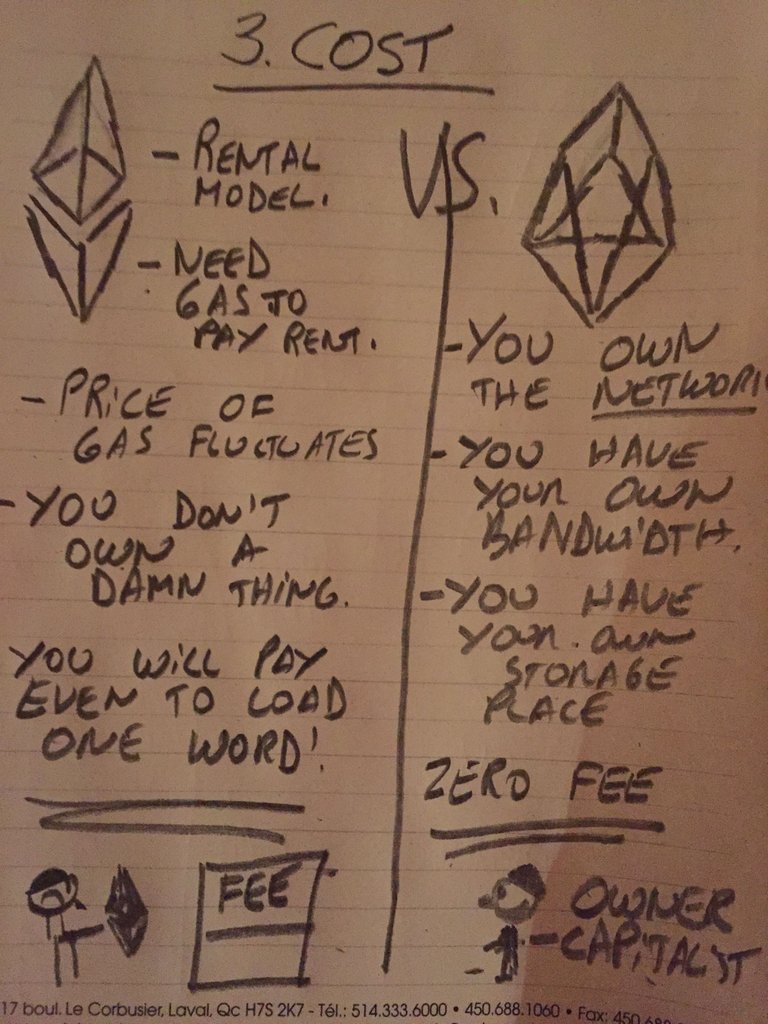 3. COST
- RENTAL
MODEL.
- NEED
GAS TO
PAY RENT.
- PRICE OF
GAS FLUCTUATES
- YOU DON'T
OWN A
DAMN THING.
YOU WILL PAY
EVEN TO LOAD
ONE WORD!
FEE
VS.
- YOU OWN
THE NETWORK
- YOU HAVE
YOUR OWN
BANDWIDTH.
- YOU HAVE
YOUR OWN
STORAGE
PLACE
ZERO FEE
OWNER
- CAPITALIST
17 boul. Le Corbusier, Laval, Qc H7S 2K7 - Tél.: 514.333.6000 • 450.688.1060 • Fax: 450